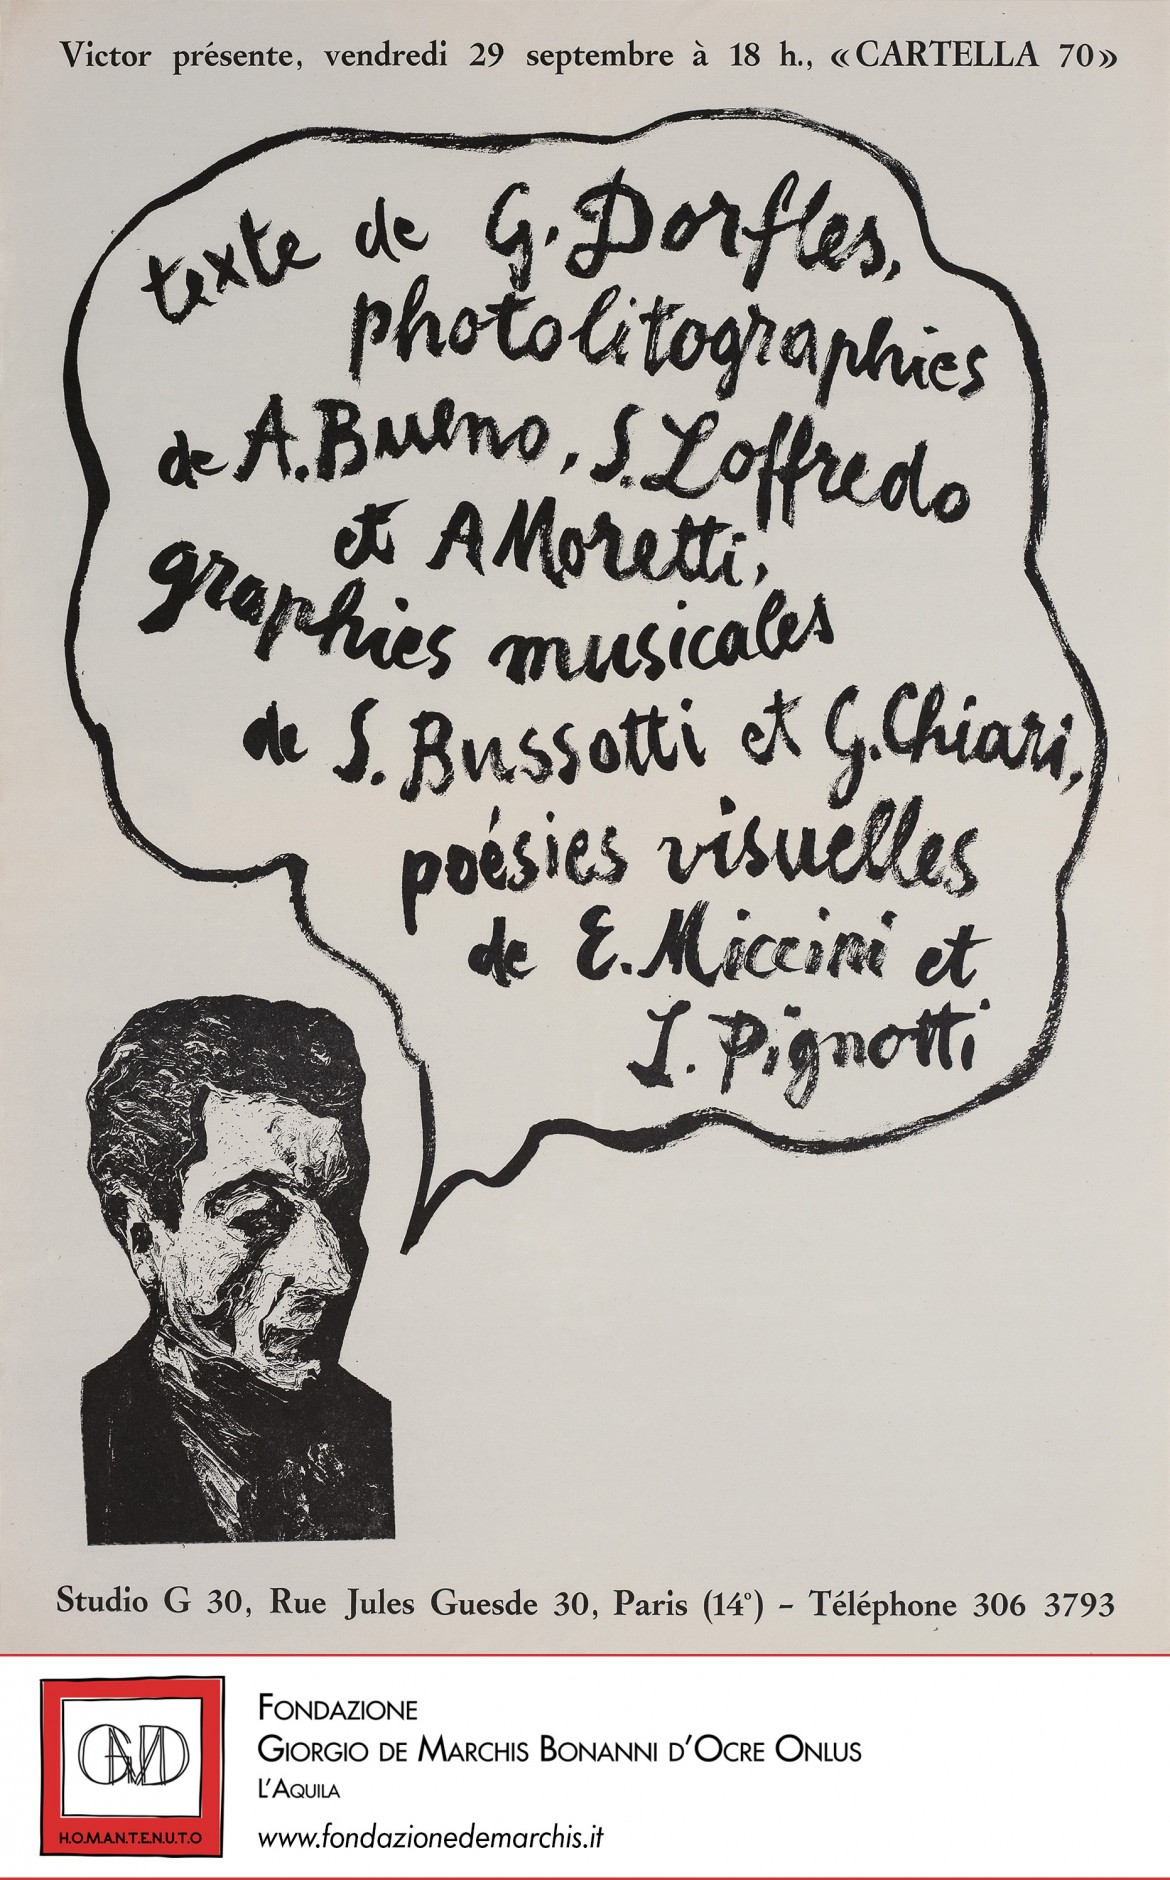 Victor présente, vendredi 29 septembre à 18 h., «CARTELLA 70»
texte de G. Dorfles,
photolitographies
de A. Bueno, S. Loffredo
et A Moretti,
graphies musicales
de S. Bussotti et G. Chiari,
poésies visuelles
de E. Miccini et
L. Pignotti
Studio G 30, Rue Jules Guesde 30, Paris (14°) – Téléphone 306 3793
GMD
H.O.M.A.N.T.E.N.U.T.O
FONDAZIONE
GIORGIO DE MARCHIS BONANNI D'OCRE ONLUS
L'AQUILA
www.fondazionedemarchis.it